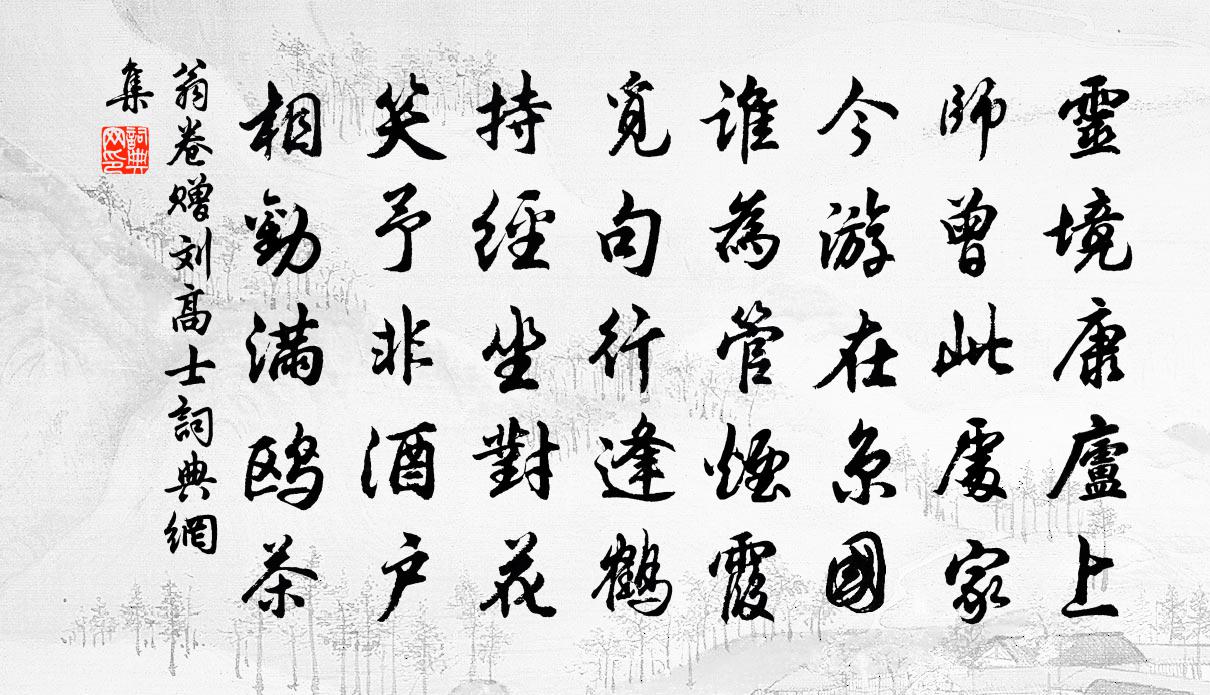 靈境康廬上
師曾此處家
今游在京國
誰為管煙霞
覓句行逢鶴
持經坐對花
笑予非酒户
相勸滿鷗茶
翁卷赠刘高士詞典網
集
詞典网印